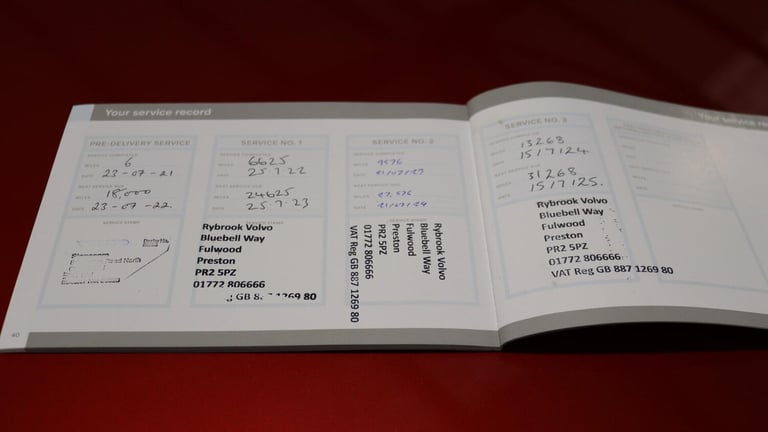 Your service record
Your service re
PRE-DELIVERY SERVICE
SERVICE COMPLETED
MILES 6
DATE 23-07-21
NEXT SERVICE DUE
MILES 18,000
DATE 23-07-22
SERVICE STAMP
SERVICE NO. 1
SERVICE COMPLETED
MILES 6625
DATE 25.7.22
NEXT SERVICE DUE
MILES 24625
DATE 25.7.23
SERVICE STAMP
Rybrook Volvo
Bluebell Way
Fulwood
Preston
PR2 5PZ
01772 806666
GB 8 1269 80
SERVICE NO. 2
SERVICE COMPLETED
MILES 9576
DATE 21/07/23
NEXT SERVICE DUE
MILES 27,576
DATE 21/07/24
SERVICE STAMP
Rybrook Volvo
Bluebell Way
Fulwood
Preston
PR2 5PZ
01772 806666
VAT Reg GB 887 1269 80
SERVICE NO. 3
MILES 13268
DATE 15/7/24.
MILES 31268
DATE 15/7/25.
Rybrook Volvo
Bluebell Way
Fulwood
Preston
PR2 5PZ
01772 806666
VAT Reg GB 887 1269 80
40